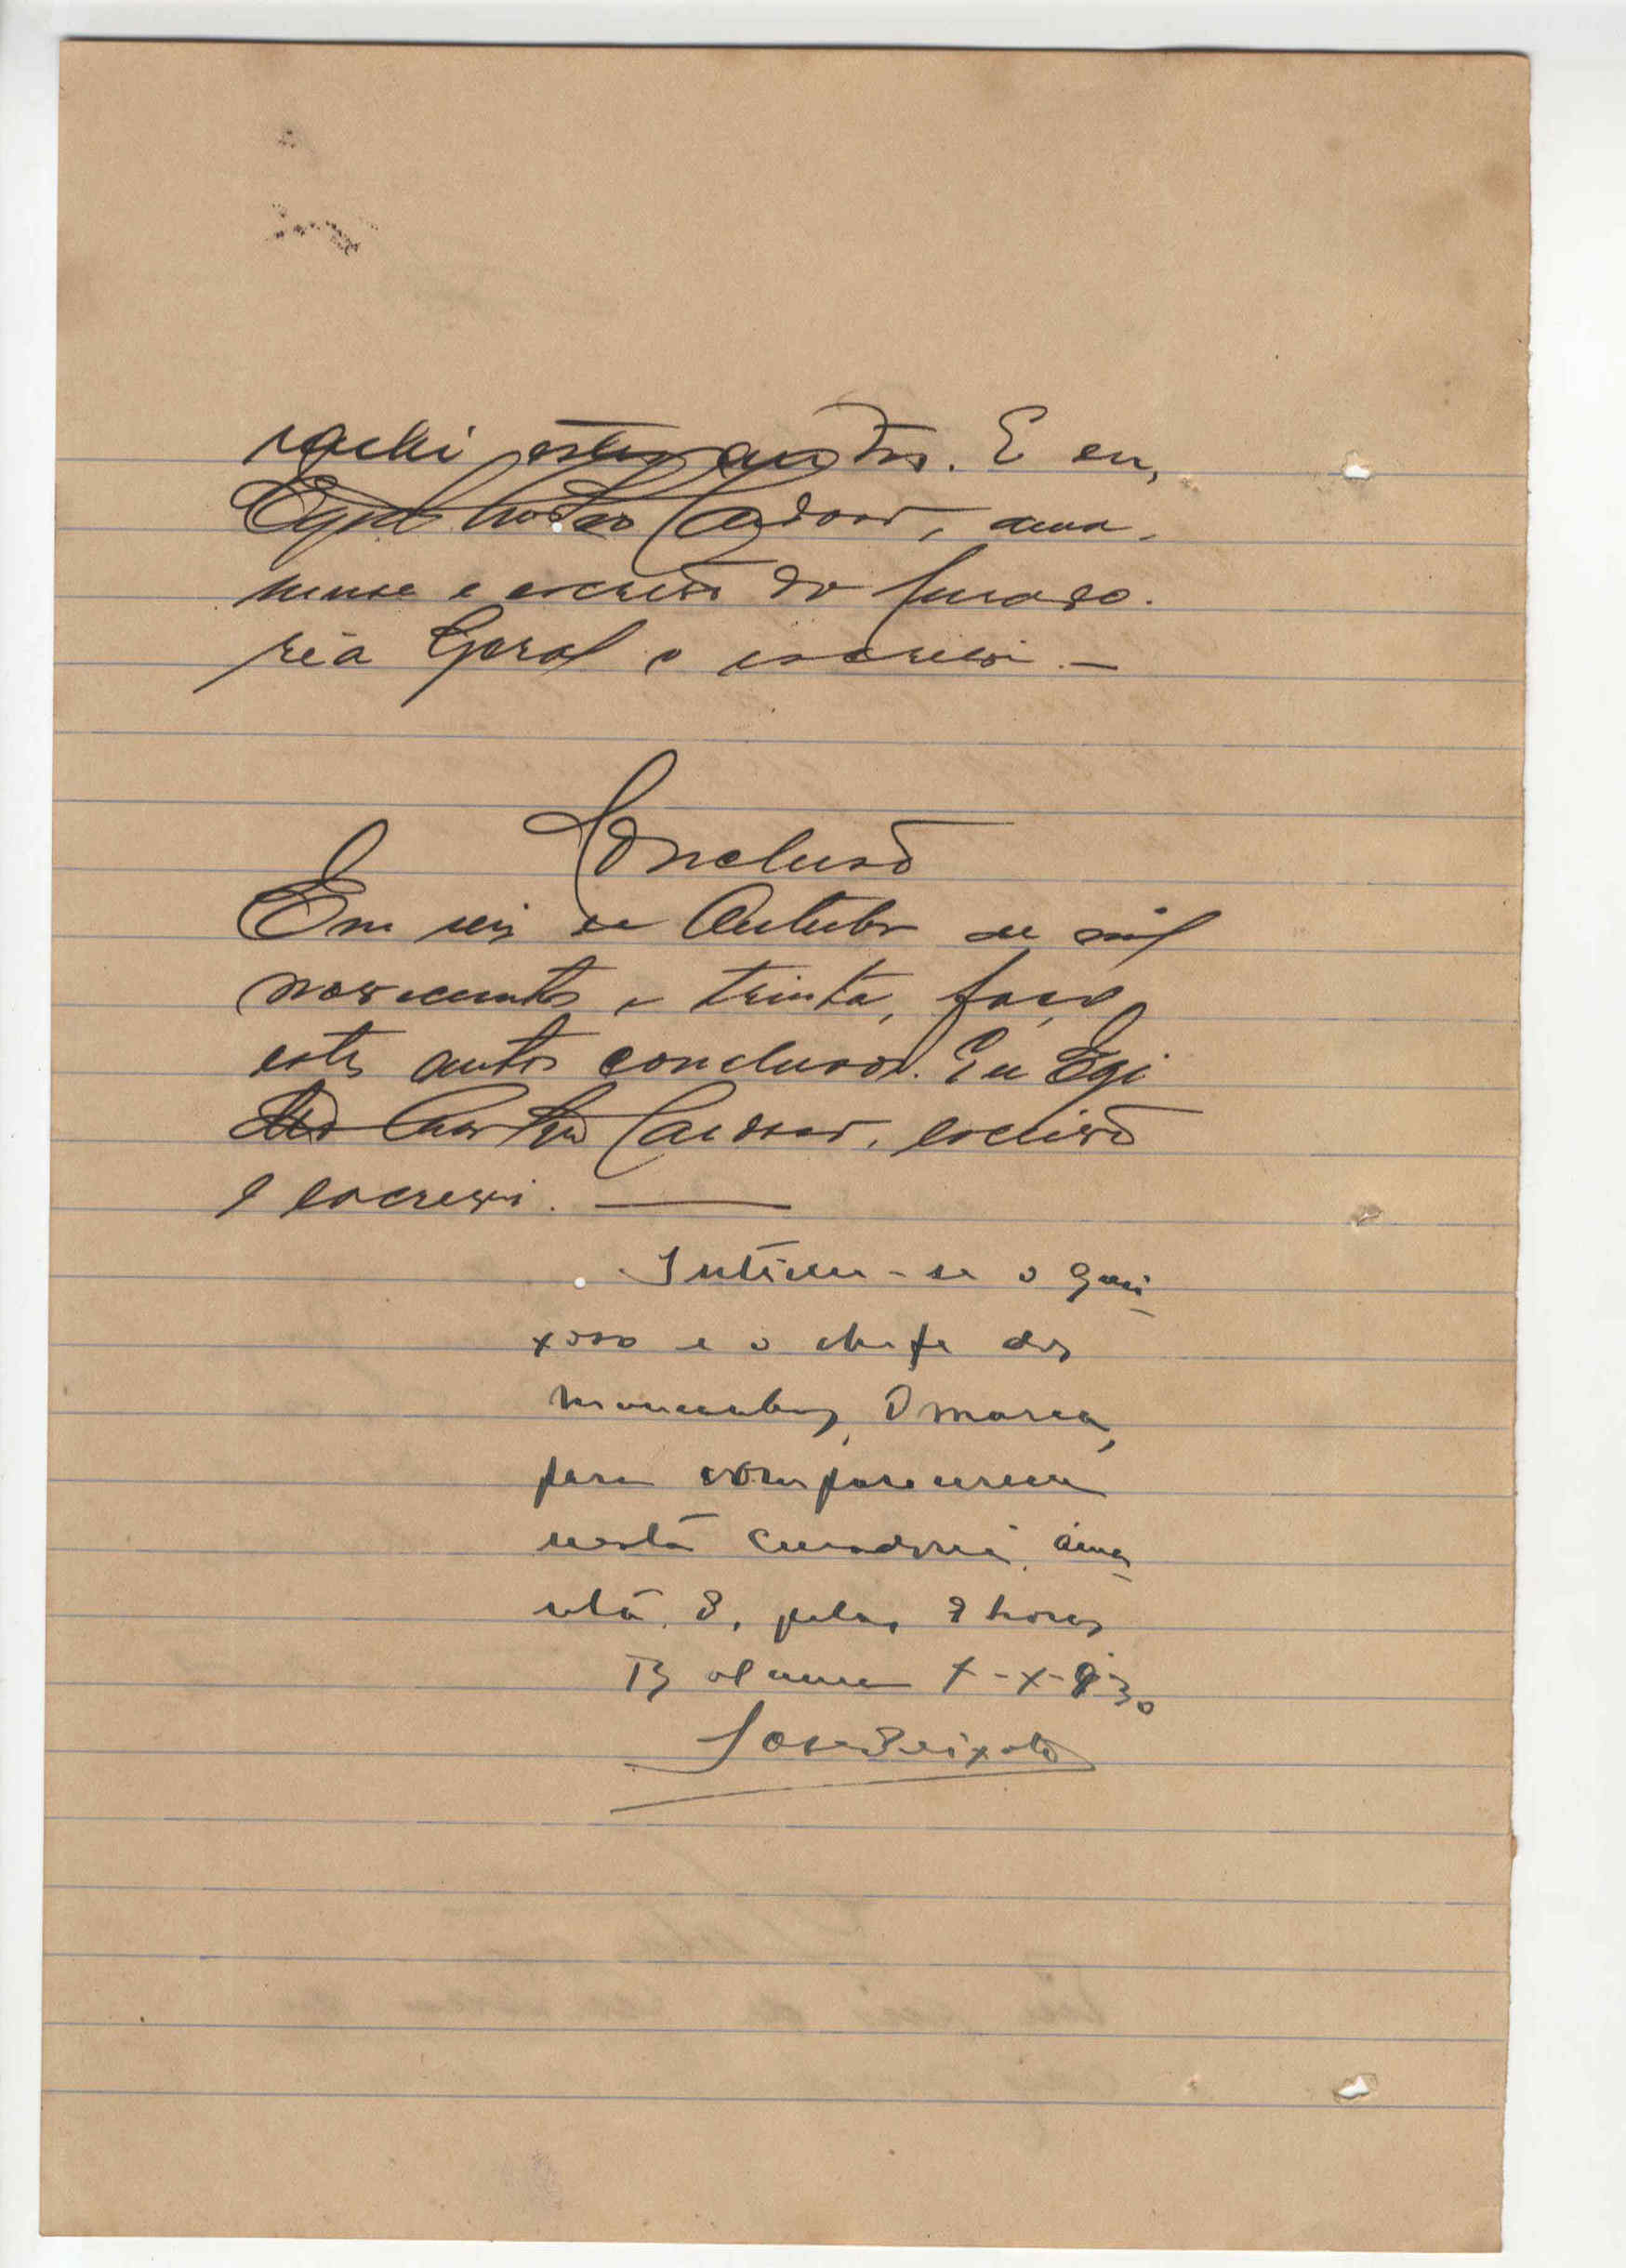 estes autos. E eu,
Cardoso, ama-
nuense e escrivão da Curado-
ria Geral o escrevi. —
Conclusão
Em seis de Outubro de mil
novecentos e trinta, faço
estes autos conclusos. Eu Egi
Cardoso, escrivão
o escrevi. —
Intime-se o quei-
xoso e o chefe dos
Omarca,
para comparecerem
nesta curadoria, ama-
nhã, 8, pelas 8 horas
Bolama 7-X-930
José Peixoto